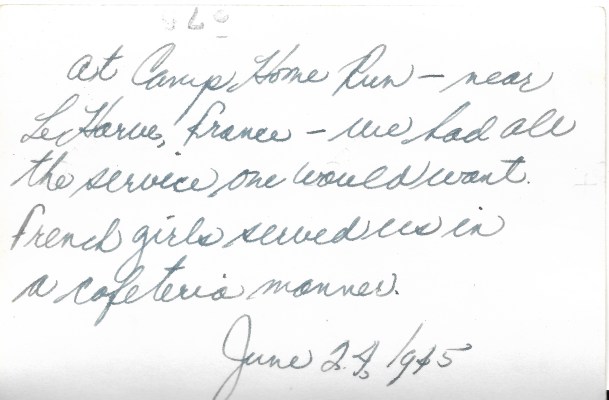 at Camp Home Run - near
Le Harve, France - we had all
the service one would want.
French girls served us in
a cafeteria manner.
June 24, 1945